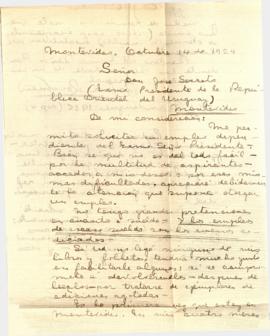 Montevideo, Octubre 14 de 1924
Señor
Don José Serrato
(Exmo Presidente de la Repú-
blica Oriental del Uruguay)
Montevideo
De mi consideración:
Me per-
mito solicitar un empleo depen-
diente del Exmo Señor Presidente.
Bien sé que no es del todo fácil
por la multitud de aspirantes
acceder a mis deseos; por esas mis-
mas dificultades, apreciaré debidamen-
te la atención que supone otorgar
un empleo.
No tengo grandes pretensiones
en cuanto a sueldo y los empleos
de escaso sueldo son los menos co-
diciados.
Si Ud. no leyó ninguno de mis
libros y folletos, tendría mucho gusto
en facilitarle algunos, si se comprome-
te a devolvérmelos después de
leerlos, por tratarse de ejemplares de
ediciones agotadas.
Es la primera vez que estoy en
Montevideo. En mis cuatro meses